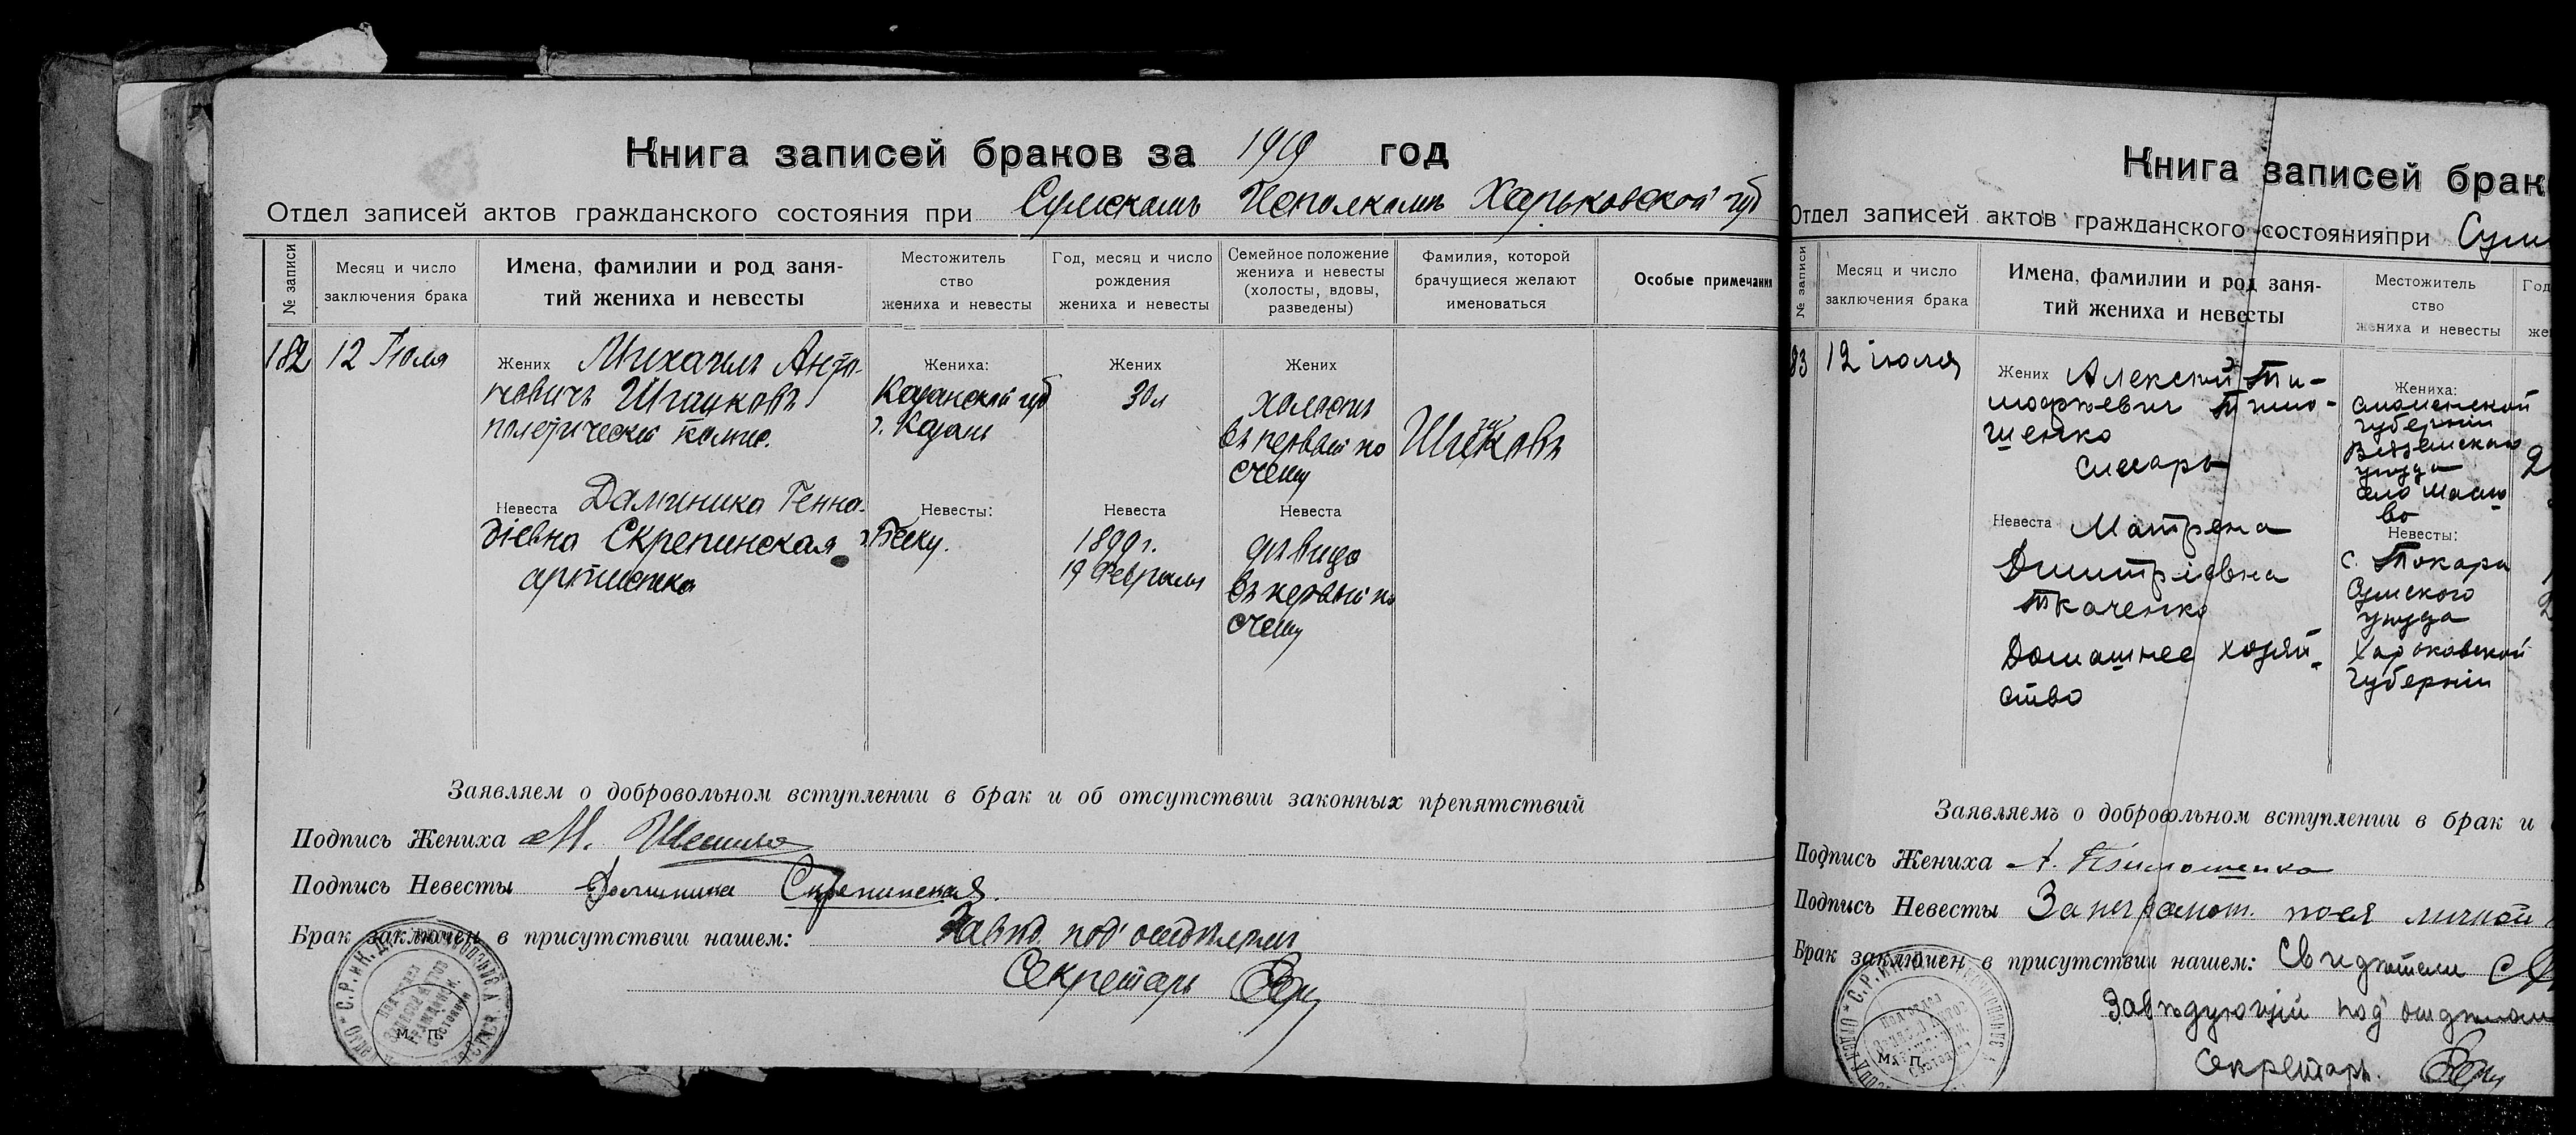 Книга записей браков за 1919 год
Отдел записей актов гражданского состояния при Сумскомъ Исполкомъ Харьковской губ
№ записи
Месяц и число
заключения брака
Имена, фамилии и род заня-
тий жениха и невесты
Местожитель
ство
жениха и невесты
Год, месяц и число
рождения
жениха и невесты
Семейное положение
жениха и невесты
(холосты, вдовы,
разведены)
Фамилия, которой
брачущиеся желают
именоваться
Особые примечания
182
12 Июля
Жених Михаилъ Анто-
новичъ
политическ комис.
Невеста Даминика Генна-
діевна Скрепинская
артистка
Жениха:
Казанской губ
г. Казань
Невесты:
г. Баку.
Жених
30 л
Невеста
1899 г.
19 Февраля
Жених
холостъ
въ первый по
счету
Невеста
дѣвица
въ первый по
счету
Заявляем о добровольном вступлении в брак и об отсутствии законных препятствий
Подпись Жениха М.
Подпись Невесты Доминика Скрепинская.
Брак заключен в присутствии нашем: Завѣд. под'отдѣломъ
Секретарь
М. П.
Книга записей брак
Отдел записей актов гражданского состояния при Сум
№ записи
Месяц и число
заключения брака
Имена, фамилии и род заня-
тий жениха и невесты
Местожитель
ство
жениха и невесты
Год
же
83
12 июля
Жених Алексѣй Ти-
мофеевич Тимо-
шенко
слесарь
Невеста Матрена
Дмитріевна
Ткаченко
Домашнее хозяй-
ство
Жениха:
Смоленской
губерніи
Вяземскаго
уѣзда
село
во
Невесты:
с. Токари
Сумского
уѣзда
Харьковской
губерніи
2
Заявляемъ о добровольном вступлении в брак и
Подпись Жениха А. Тимошенко
Подпись Невесты За неграмот. поея личной
Брак заключен в присутствии нашем: Свидѣтели
Завѣдующій под'отдѣлом
Секретарь.
М. П.